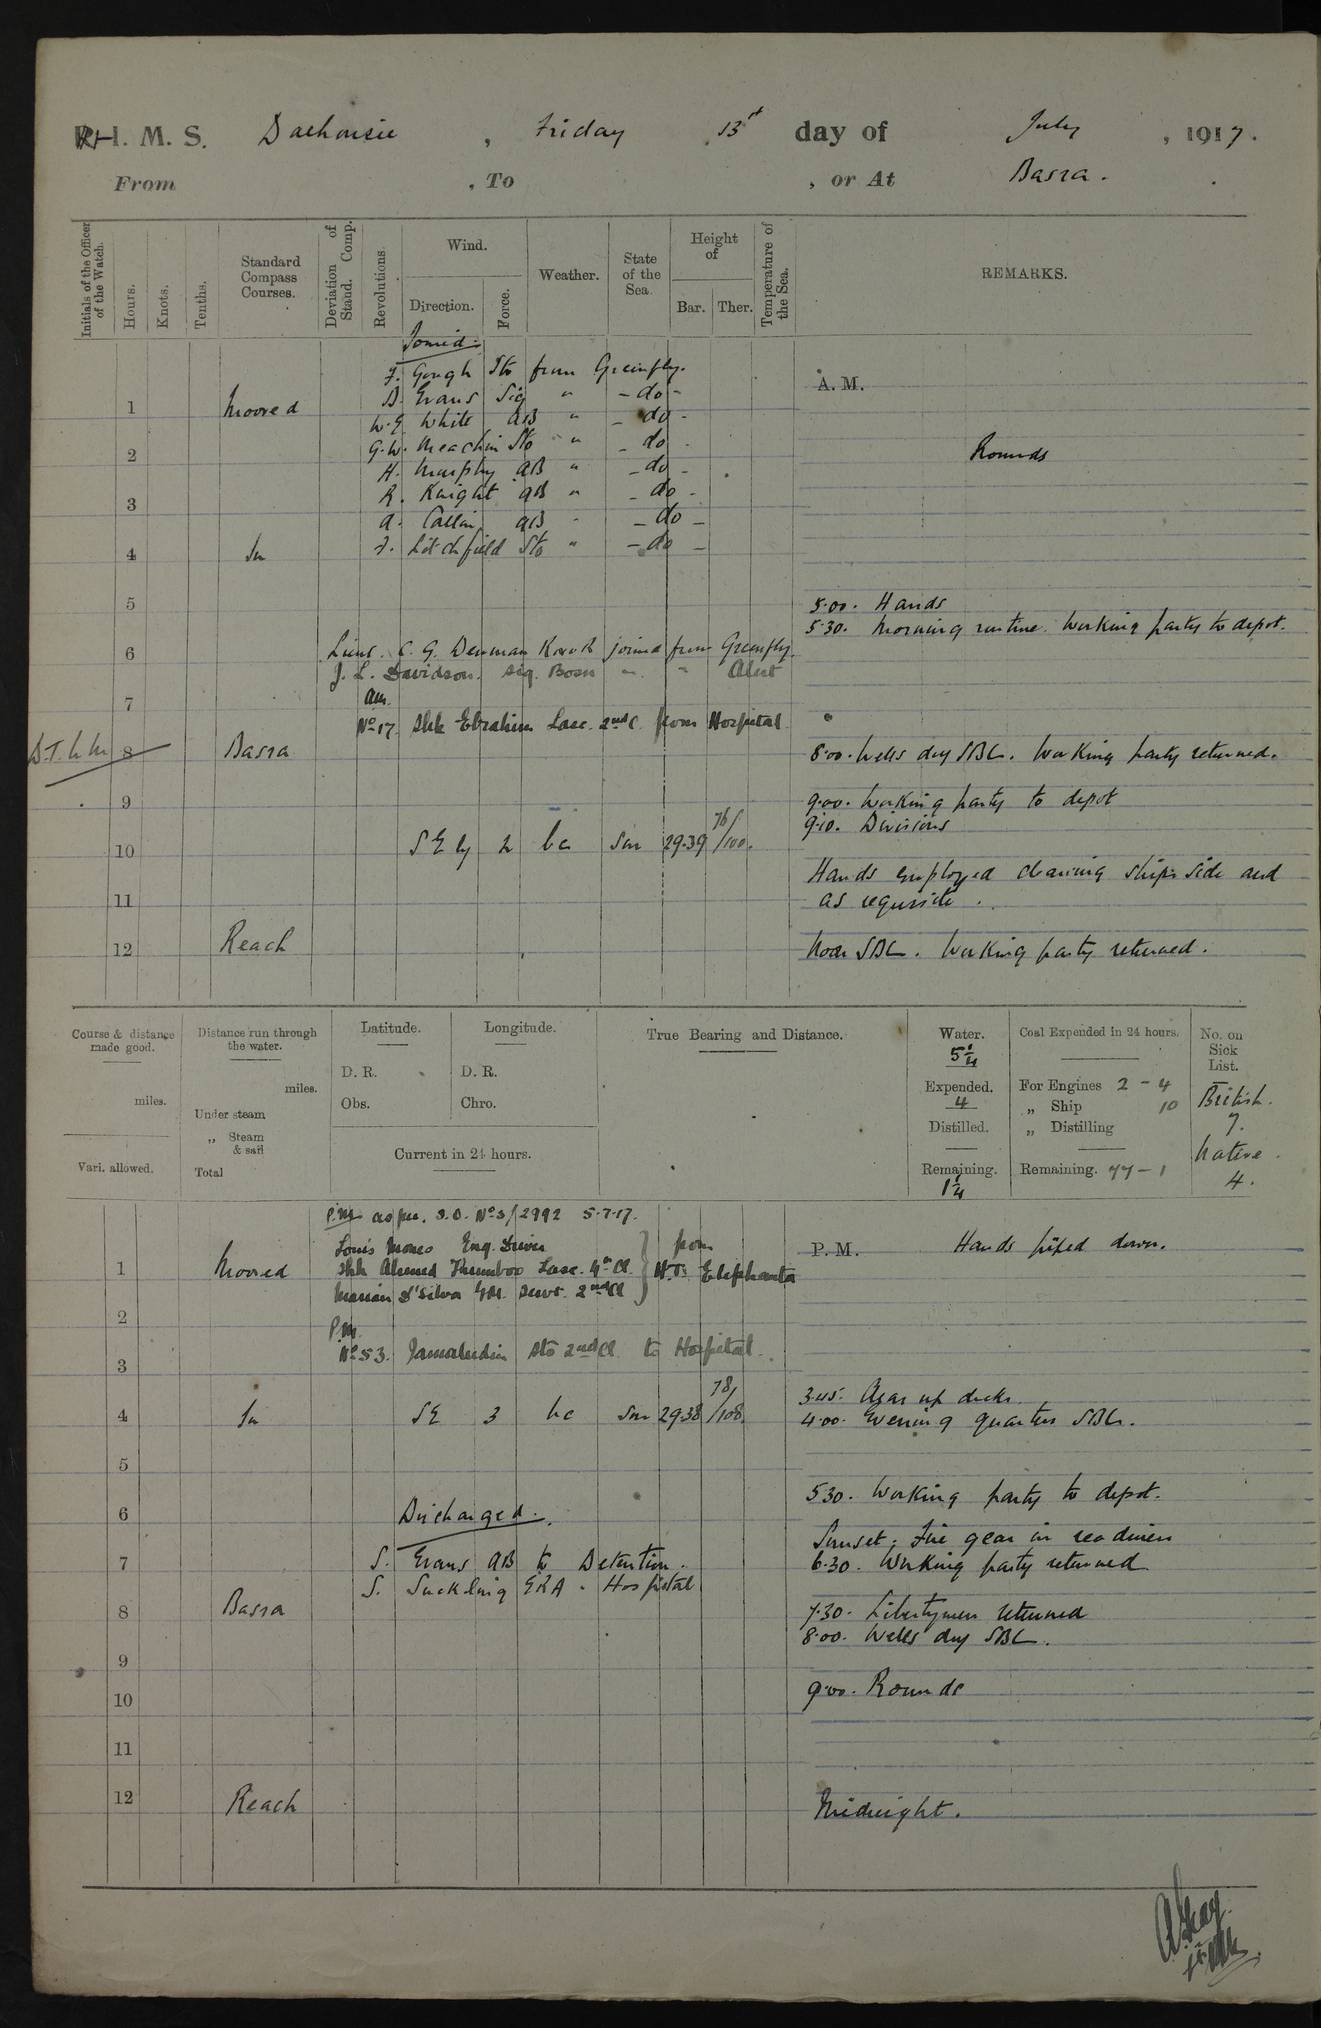 R. I. M. S. Dalhousie, Friday 13th day of July, 1917.
From , To , or At Basra.
Initials of the Officer of the Watch.
Hours.
Knots.
Tenths.
Standard Compass Courses.
Deviation of Stand. Comp.
Revolutions.
Wind.
Direction.
Force.
Weather.
State of the Sea.
Height of
Bar.
Ther.
Temperature of the Sea.
REMARKS.
Joined:-
F. Gough Sto from Greenfly.
A. M.
D. Evans Sig " - do -
1 Moored
W.G. White AB " - do -
G.W. Meachin Sto " - do -
2 Rounds
H. Murphy AB " - do -
R. Knight AB " - do -
3
A. AB " - do -
4 In
F. Litchfield Sto " - do -
5 5.00. Hands
5.30. Morning routine. Working party to depot.
6 Lieut. C. G. Denman joined from Greenfly.
J. L. Davidson. Sig. Bosn " " Alert
7 AM.
No 17. Shk Ebrahim Lasc. 2nd C. from Hospital.
8 Basra 8.00. Wells dry SBC. Working party returned.
9 9.00. Working party to depot
9.10. Divisions
10 SEly 2 bc Sm 29.39 76/100.
Hands employed cleaning ships side and
11 as requisite.
12 Reach Noon SBC. Working party returned.
Course & distance made good.
miles.
Vari. allowed.
Distance run through the water.
miles.
Under steam
„ Steam & sail
Total
Latitude.
D. R.
Obs.
Longitude.
D. R.
Chro.
Current in 24 hours.
True Bearing and Distance.
Water.
5¼
Expended.
4
Distilled.
Remaining.
1¼
Coal Expended in 24 hours.
For Engines 2 - 4
„ Ship 10
„ Distilling
Remaining. 77 - 1
No. on Sick List.
British.
7.
Native.
4.
P.M. as per. S.O. No 3/2992 5.7.17.
P. M. Hands piped down.
Louis Eng. Driver
1 Moored Shk Ahmed Lasc. 4th Cl. from H.T. Elephanta
D'Silva Servt. 2nd Cl
2
P.M.
No 53. Jamaludin Sto 2nd Cl. to Hospital.
3
3.45. Clear up decks.
4 In SE 3 bc Sm 29.38 78/108. 4.00. Evening quarters SBC.
5
5.30. Working party to depot.
6 Discharged:-
Sunset. Fire gear in readiness
7 S. Evans AB to Detention. 6.30. Working party returned
S. Suckling ERA " Hospital
8 Basra 7.30. Libertymen returned
8.00. Wells dry SBC.
9
10 9.00. Rounds
11
12 Reach Midnight.